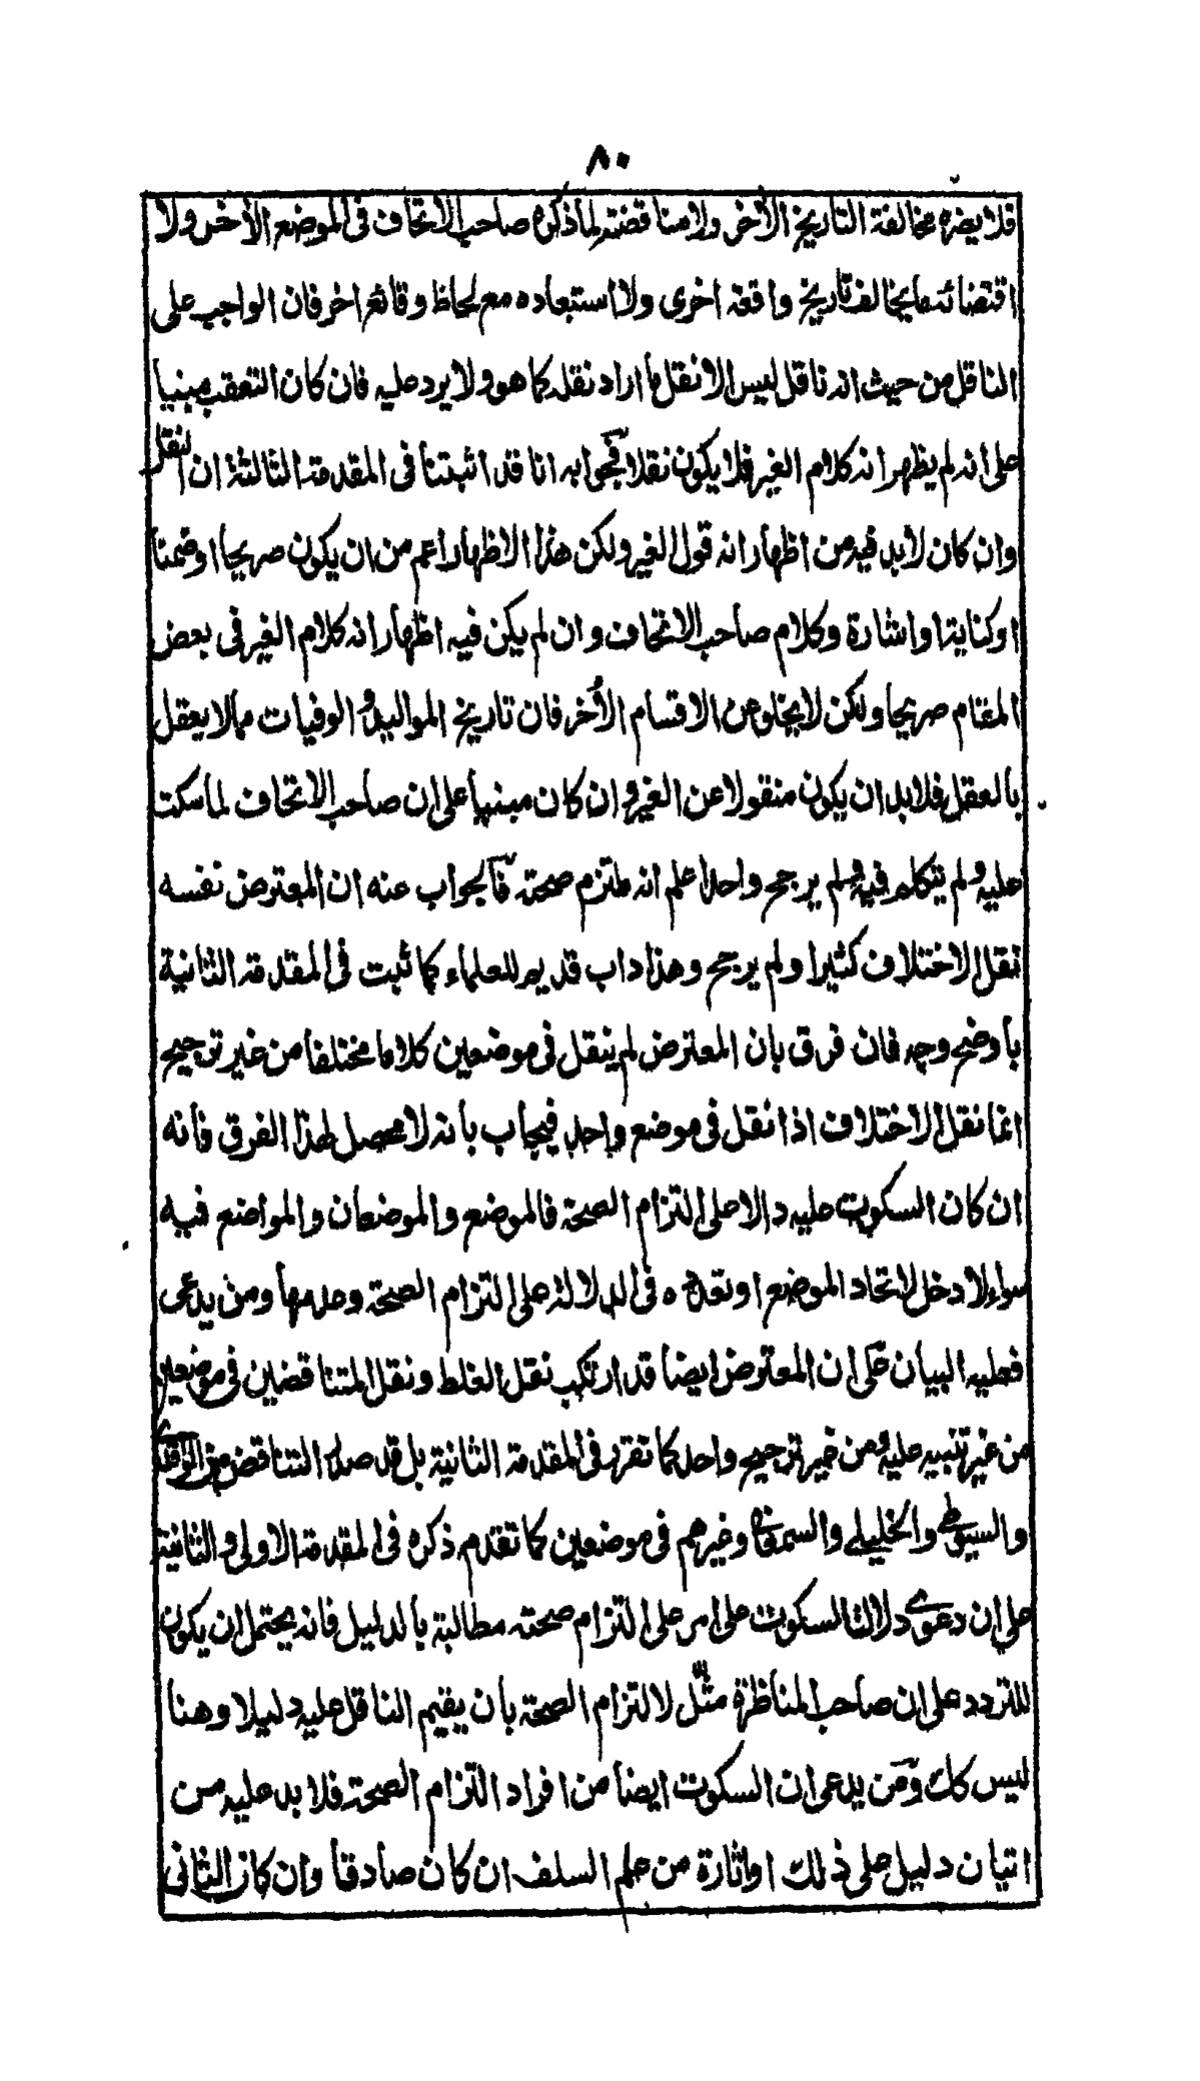 ٨٠
فلا يضره مخالفة التاريخ الأخر ولا مناقضته لما ذكره صاحب الاتحاف فى الموضع الأخر ولا
اقتضائه ما يخالف تاريخ واقعة اخرى ولا استبعاده مع لحاظ وقائع اخر فان الواجب على
الناقل من حيث انه ناقل ليس الا نقل ما اراد نقله كما هو ولا يرد عليه فان كان التعقب مبنيا
على انه لم يظهر انه كلام الغير فلا يكون نقلا فجوابه انا قد اثبتنا فى المقدمة الثالثة ان النقل
وان كان لا بد فيه من اظهار انه قول الغير ولكن هذا الاظهار اعم من ان يكون صريحا او ضمنا
او كناية او اشارة وكلام صاحب الاتحاف وان لم يكن فيه اظهار انه كلام الغير فى بعض
المقام صريحا ولكن لا يخلو عن الاقسام الأخر فان تاريخ المواليد والوفيات مما لا يعقل
بالعقل فلا بد ان يكون منقولا عن الغير وان كان مبنيا على ان صاحب الاتحاف لما سكت
عليه ولم يتكلم فيه ولم يرجح واحدا علم انه ملتزم صحته فالجواب عنه ان المعترض نفسه
نقل الاختلاف كثيرا ولم يرجح وهذا داب قديم للعلماء كما ثبت فى المقدمة الثانية
بأوضح وجه فان فرق بان المعترض لم ينقل فى موضعين كلاما مختلفا من غير ترجيح
انما نقل الاختلاف اذا نقل فى موضع واحد فيجاب بانه لا محصل لهذا الفرق فانه
ان كان السكوت عليه دالا على التزام الصحة فالموضع والموضعان والمواضع فيه
سواء لا دخل لاتحاد الموضع او تعدده فى الدلالة على التزام الصحة وعدمها ومن يدعى
فعليه البيان على ان المعترض ايضا قد ارتكب نقل الغلط ونقل المتناقضين فى موضعين
من غير تنبيه عليه ومن غير ترجيح واحد كما تقرر فى المقدمة الثانية بل قد صدر التناقض من الواقدى
والسيوطى والخليلى والسمعانى وغيرهم فى موضعين كما تقدم ذكره فى المقدمة الاولى والثانية
على ان دعوى دلالة السكوت على امر على التزام صحته مطالبة بالدليل فانه يحتمل ان يكون
للتردد على ان صاحب المناظرة مثّل لالتزام الصحة بان يقيم الناقل عليه دليلا وهنا
ليس كك ومن يدعى ان السكوت ايضا من افراد التزام الصحة فلا بد عليه من
اتيان دليل على ذلك او اثارة من علم السلف ان كان صادقا وان كان الثانى